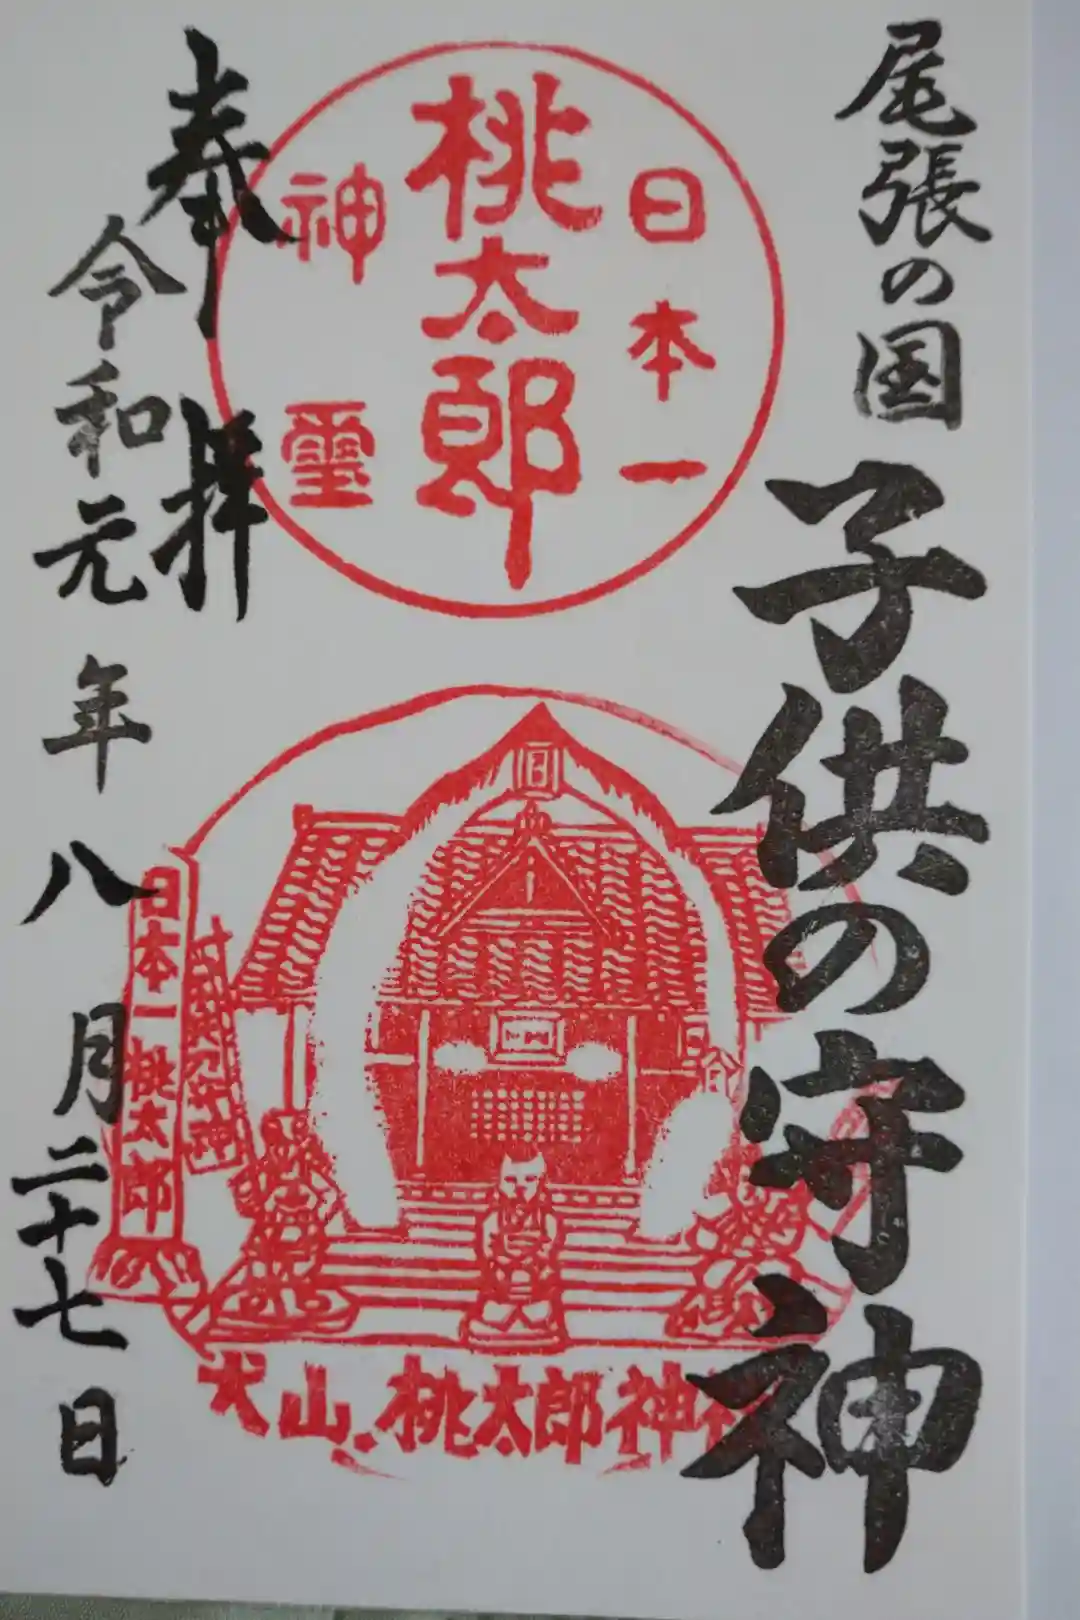 尾張の国
子供の守神
日本一
桃太郎
神璽
奉拝
令和元年八月二十七日
日本一桃太郎
犬山桃太郎神社